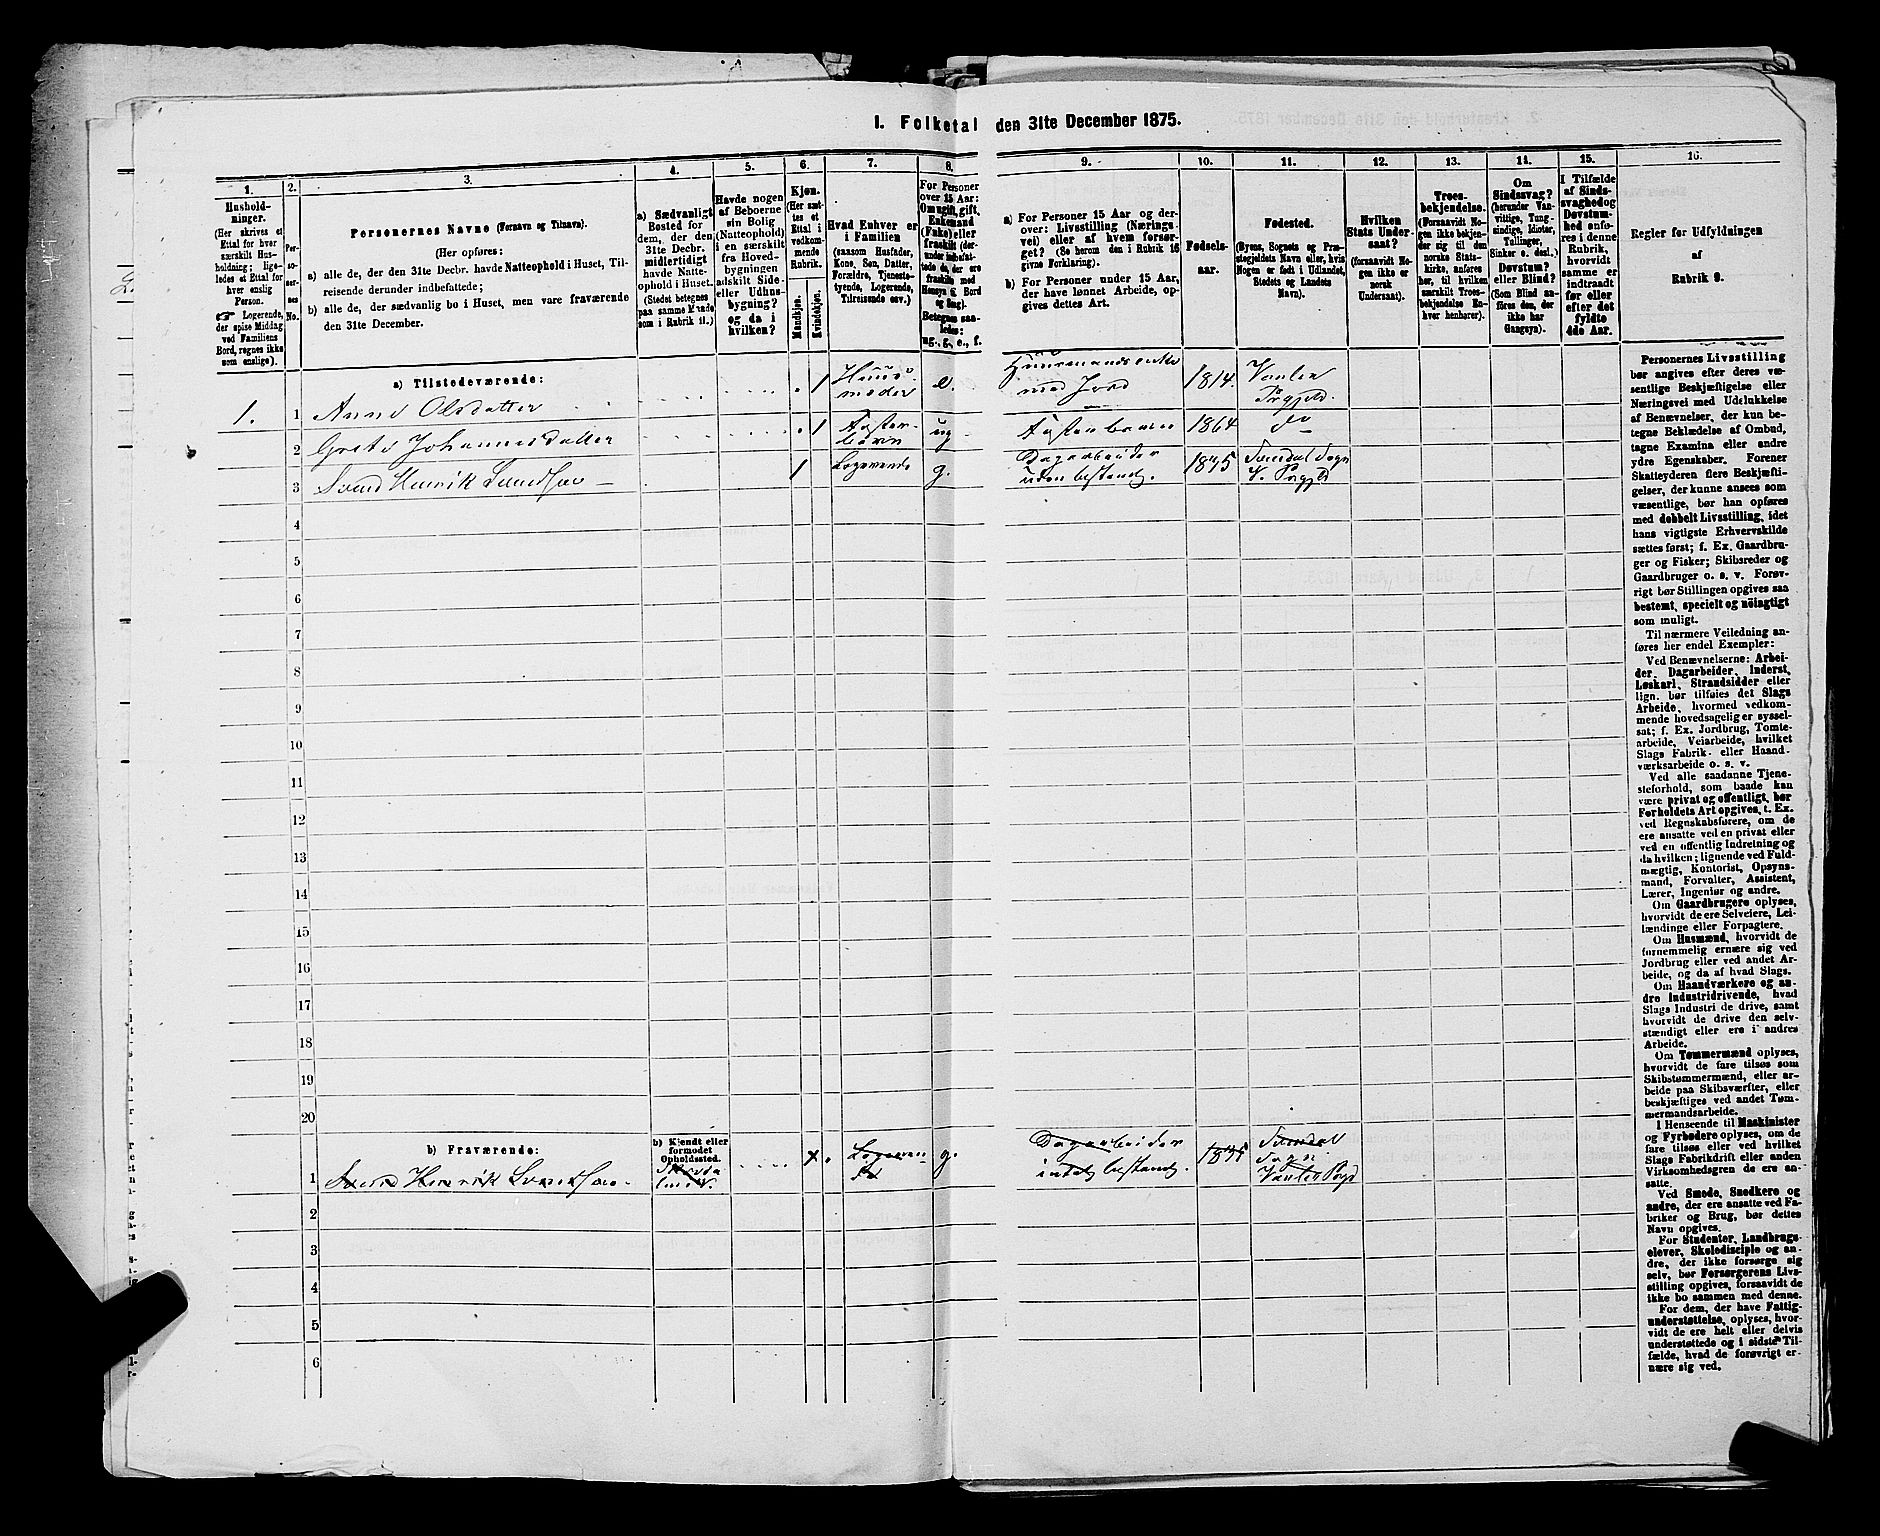 I. Folketal den 31te December 1875.
1.
Hushold-
ninger.
(Her skrives et
Ettal for hver
særskilt Hus-
holdning; lige-
ledes et Ettal for
hver enslig
Person.
☞ Logerende,
der spise Middag
ved Familiens
Bord, regnes ikke
som enslige).
2.
Per-
so-
ner-
nes
No.
3.
Personernes Navne (Fornavn og Tilnavn).
(Her opføres:
a) alle de, der den 31te Decbr. havde Natteophold i Huset, Til-
reisende derunder indbefattede;
b) alle de, der sædvanlig bo i Huset, men vare fraværende
den 31te December.
4.
a) Sædvanligt
Bosted for
dem, der den
31te Decbr.
midlertidigt
havde Natte-
ophold i Huset.
(Stedet betegnes
paa samme Maade
som i Rubrik 11.)
5.
Havde nogen
af Beboerne
sin Bolig
(Natteophold)
i en særskilt
fra Hoved-
bygningen
adskilt Side-
eller Udhus-
bygning?
og da i
hvilken?
6.
Kjøn.
(Her sæt-
tes et
Ettal i
vedkom-
mende
Rubrik.
Mandkjøn.
Kvindekjøn.
7.
Hvad Enhver er
i Familien
(saasom Husfader,
Kone, Søn, Datter,
Forældre, Tjeneste-
tyende, Logerende,
Tilreisende osv.).
8.
For Personer
over 15 Aar:
Om ugift, gift,
Enkemand
(Enke) eller
fraskilt (der-
under indbefat-
tede de, der ere
fraskilte med
Hensyn til Bord
og Seng).
Betegnes saa-
ledes:
ug., g., e., f.
9.
a) For Personer 15 Aar og der-
over: Livsstilling (Nærings-
vei) eller af hvem forsør-
get? (Se herom den i Rubrik 16
givne Forklaring).
b) For Personer under 15 Aar,
der have lønnet Arbeide, op-
gives dettes Art.
10.
Fødsels-
aar.
11.
Fødested.
(Byens, Sognets og Præ-
stegjeldets Navn eller, hvis
Nogen er født i Udlandet,
Stedets og Landets
Navn).
12.
Hvilken
Stats Under-
saat?
(forsaavidt No-
gen ikke er
norsk
Undersaat).
13.
Troes-
bekjendelse.
(Forsaavidt No-
gen ikke bekjen-
der sig til den
norske Stats-
kirke, anføres
her, til hvilken
særskilt Troes-
bekjendelse En-
hver henhører).
14.
Om
Sindssvag?
(herunder Van-
vittige, Tung-
sindige, Idioter,
Tullinger,
Sinker o. desl.).
Døvstum?
eller Blind?
(Som Blind an-
føres den, der
ikke har
Gangsyn).
15.
I Tilfælde
af Sinds-
svaghed og
Døvstum-
hed anfø-
res i denne
Rubrik,
hvorvidt
samme er
indtraadt
før eller
efter det
fyldte
4de Aar.
16.
Regler for Udfyldningen
af
Rubrik 9.
a) Tilstedeværende:
1. 1 Anne Olsdatter 1 Huus-
moder e. Huusmandsenke
med Jord 1814. Vanlse
Prgjeld.
2 Grete Johannesdatter 1 Foster-
barn ug Fosterbarn 1864 do
3 Svend Henrik Svendsen 1 Logerende g. Dagarbeider
uden bestemt. 1835 Sogn
V. Prgjld
4
5
6
7
8
9
10
11
12
13
14
15
16
17
18
19
20
b) Fraværende:
b) Kjendt eller
formodet
Opholdssted.
1 Svend Henrik Svendsen g. Dagarbeider
intet bestemt. Sogn.
Vanlse Prgjd
2
3
4
5
6
Personernes Livsstilling
bør angives efter deres væ-
sentlige Beskjæftigelse eller
Næringsvei med Udelukkelse
af Benævnelser, der kun be-
tegne Beklædelse af Ombud,
tagne Examina eller andre
ydre Egenskaber. Forener
Skatteyderen flere Beskjæfti-
gelser, der kunne ansees som
væsentlige, bør han opføres
med dobbelt Livsstilling, idet
hans vigtigste Erhvervskilde
sættes først; f. Ex. Gaardbru-
ger og Fisker; Skibsreder og
Gaardbruger o. s. v. Forøv-
rigt bør Stillingen opgives saa
bestemt, specielt og nöiagtigt
som muligt.
Til nærmere Veiledning an-
føres her endel Exempler:
Ved Benævnelserne: Arbei-
der, Dagarbeider, Inderst,
Løskarl, Strandsidder eller
lign. bør tilføies det Slags
Arbeide, hvormed vedkom-
mende hovedsagelig er syssel-
sat; f. Ex. Jordbrug, Tomte-
arbeide, Veiarbeide, hvilket
Slags Fabrik- eller Haand-
værksarbeide o. s. v.
Ved alle saadanne Tjene-
steforhold, som baade kan
være privat og offentligt, bør
Forholdets Art opgives, t. Ex.
ved Regnskabsførere, om de
ere ansatte ved en privat eller
ved en offentlig Indretning og
da hvilken; lignende ved Fuld-
mægtig, Kontorist, Opsyns-
mand, Forvalter, Assistent,
Lærer, Ingeniør og andre.
Om Gaardbrugere oplyses,
hvorvidt de ere Selveiere, Lei-
lændinge eller Forpagtere.
Om Husmænd, hvorvidt de
fornemmelig ernære sig ved
Jordbrug eller ved andet Ar-
beide, og da af hvad Slags.
Om Haandværkere og an-
dre Industridrivende, hvad
Slags Industri de drive, samt
hvorvidt de drive den selv-
stændigt eller ere i andres
Arbeide.
Om Tømmermænd oplyses,
hvorvidt de fare tilsøs som
Skibstømmermænd, eller ar-
beide paa Skibsværfter, eller
beskjæftiges ved andet Tøm-
mermandsarbeide.
I Henseende til Maskinister
og Fyrbødere oplyses, om de
fare tilsøs eller ved hvilket
Slags Fabrikdrift eller anden
Virksomhedsgren de ere an-
satte.
Ved Smede, Snedkere og
andre, der ere ansatte ved Fa-
briker og Brug, bør dettes
Navn opgives.
For Studenter, Landbrugs-
elever, Skoledisciple og an-
dre, der ikke forsørge sig
selv, bør Forsørgerens Livs-
stilling opgives, forsaavidt de
ikke bo sammen med denne.
For dem, der have Fattig-
understøttelse, oplyses, hvor-
vidt de ere helt eller delvis
understøttede og i sidste Til-
fælde, hvad de forøvrigt er-
nære sig ved.